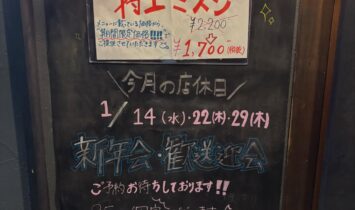 特上ミスジ
メニューに載っている価格から
¥2,200
"期間限定価格!!!"
ご提供させていただきます
¥1,700(税抜)
今月の店休日
1/14(水)・22(木)・29(木)
新年会・歓送迎会
ご予約お待ちしております!!